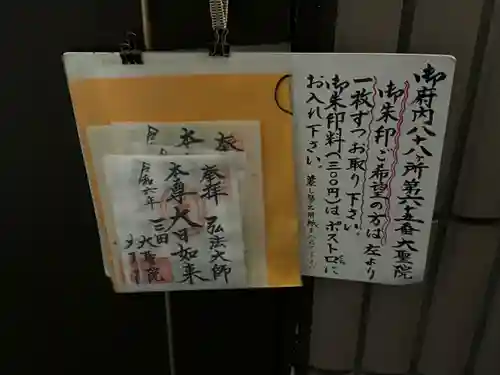 御府内八十八ヶ所第六十五番大聖院
御朱印ご希望の方は左より
一枚ずつお取り下さい。
御朱印料(三〇〇円)はポストに
お入れ下さい。
奉拝
弘法大師
本尊大日如来
令和六年
三田
大聖院